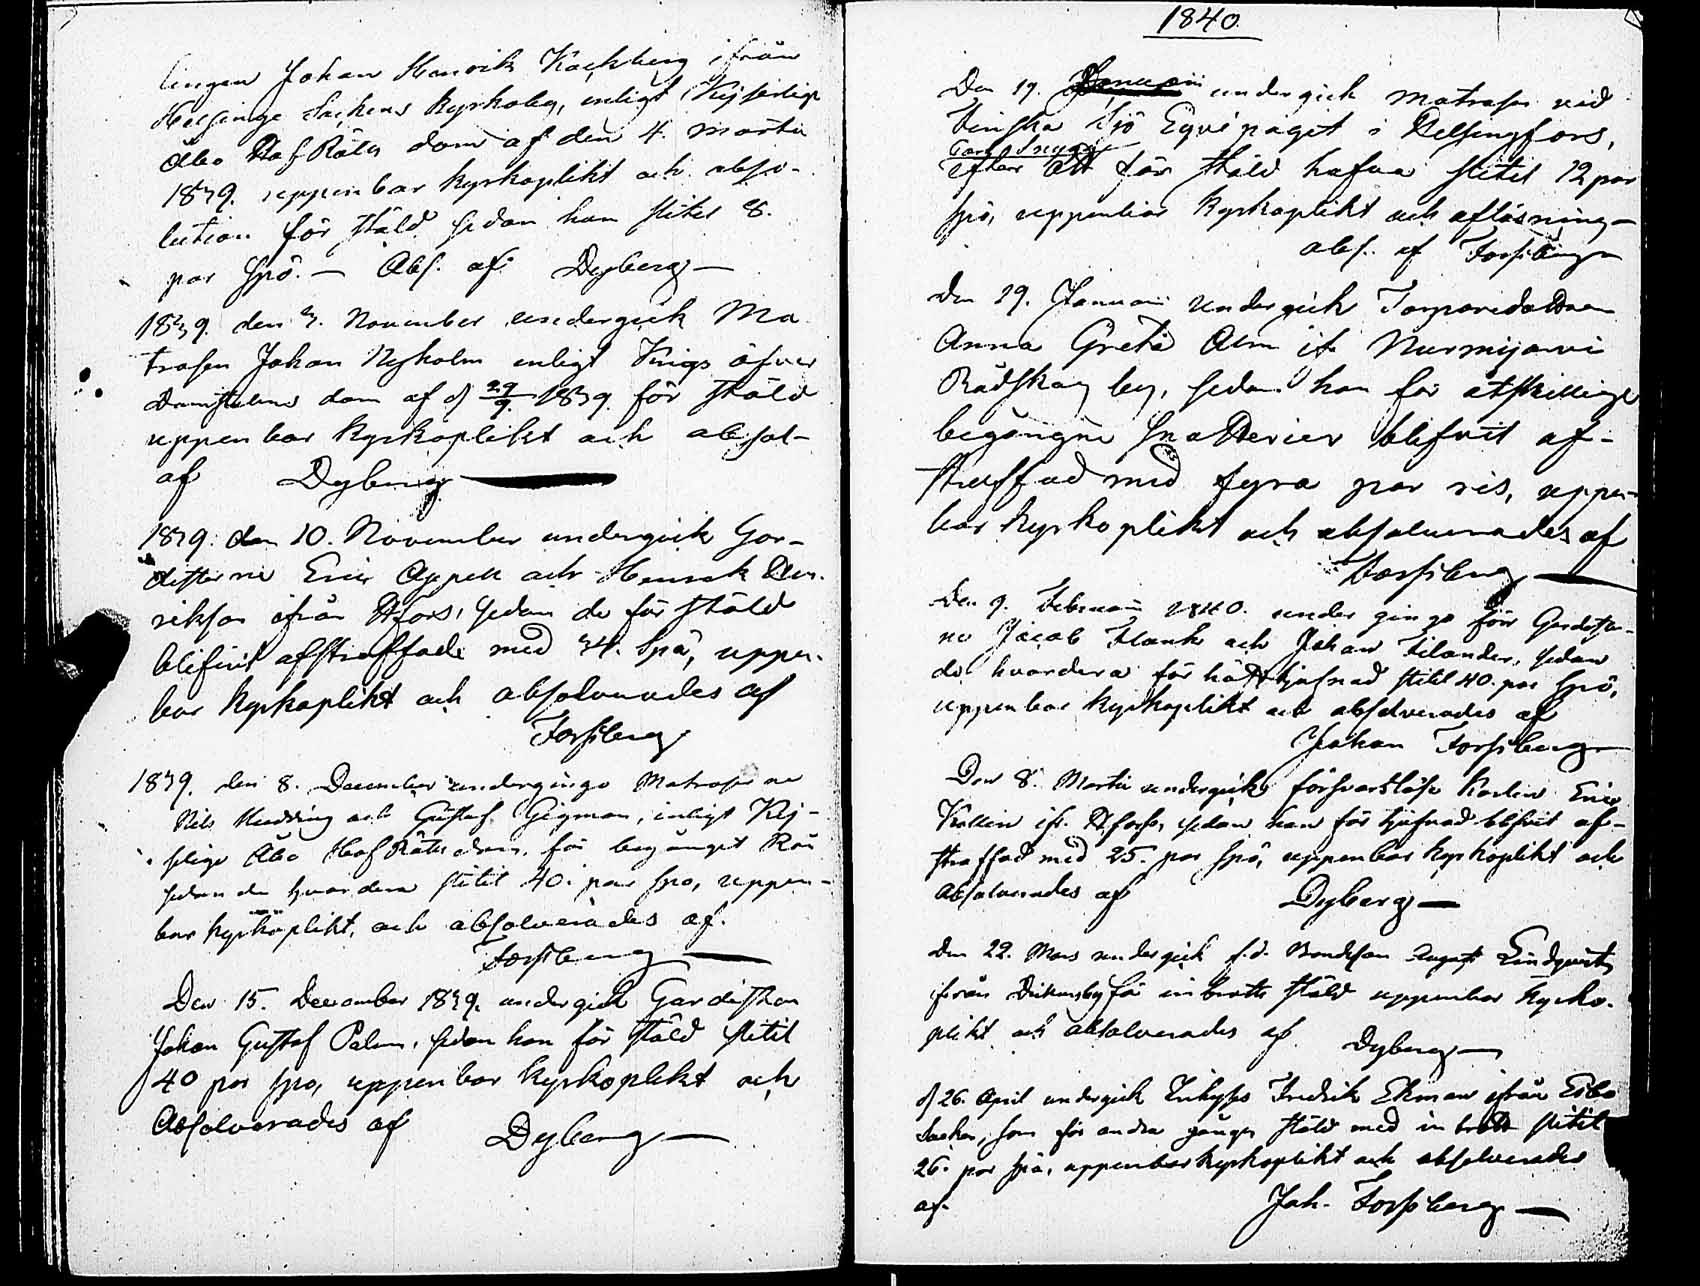 lingen Johan Henrik Kackberg ifrån
Helsinge Sockens kyrkoby, enligt Kejserlige
Åbo Hof Rätts dom af den 4. Martii
1839. uppenbar kyrkoplikt och abso-
lution för stöld sedan han slitit 8.
par spö. — Abs. af Dyberg —
1839. den 3. November undergick Ma
trosen Johan Nyholm enligt Krigs öfver
Domstolens dom af d 27/9. 1839. för stöld
uppenbar kyrkoplikt och absol-
af Dyberg —
1839. den 10. November undergick Gar-
disterne Eric Appell och Henrik Hen-
riksson ifrån Hfors, sedan de för stöld
blifvit afstraffade med 34. spö, uppen-
bar kyrkoplikt och absolverades af
Forssberg
1839. den 8. December undergingo Matroserne
Nils Mudding och Gustaf Gigman, enligt Kej-
serlige Åbo Hof Rätts dom, för begånget Rån
sedan de hvardera slitit 40. par spö, uppen-
bar kyrkoplikt, och absolverades af.
Forssberg —
Den 15. December 1839. undergick Gardisten
Johan Gustaf Palm, sedan han för stöld slitit
40 par spö, uppenbar kyrkoplikt och
Absolverades af Dyberg —
1840.
Den 19. Januarii undergick matrosen vid
Finska Sjö Equipaget i Helsingfors,
Carl
efter att för stöld hafva slitit 12 par
spö, uppenbar kyrkoplikt och aflösning —
abs. af Forssberg
Den 19. Januarii undergick Torparedottren
Anna Greta Alm ifr Nurmijärvi
Rådskog by, sedan hon för åtskillige
begångne snatterier blifvit af-
straffad med fyra par ris, uppen-
bar kyrkoplikt och absolverades af
Forssberg —
Den 9. Februarii 1840. undergingo förr Gardister-
ne Jacob Flank och Johan Filander, sedan
de hvardera för tjufnad slitit 40. par spö,
uppenbar kyrkoplikt och absolverades af
Johan Forssberg
Den 8. Martii undergick försvarslöse Karlen Eric
Kollin ifr. Hfors, sedan han för tjufnad blifvit af-
straffad med 25. par spö, uppenbar kyrkoplikt och
absolverades af Dyberg —
Den 22. Mars undergick f.d. Bondeson August Lindqvist
ifrån Dickursby för inbrotts stöld uppenbar kyrko-
plikt och absolverades af Dyberg —
d 26. April undergick Fredrik Ekman ifrån Esbo
Socken, som för andra gången stöld med inbrott slitit
26. par spö, uppenbar kyrkoplikt och absolverades
af. Joh. Forssberg —